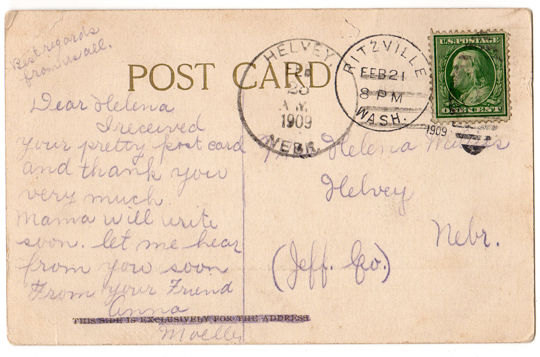 Best regards
from us all.
POST CARD
Dear Helena
I received
your pretty post card
and thank you
very much.
Mama will write
soon. let me hear
from you soon
From your Friend
Anna
Moeller
THIS SIDE IS EXCLUSIVELY FOR THE ADDRESS
HELVEY
A.M.
1909
NEBR.
RITZVILLE
FEB 21
8 PM
WASH.
1909
U.S. POSTAGE
ONE CENT
Helena
Helvey
Nebr.
(Jeff. Co.)